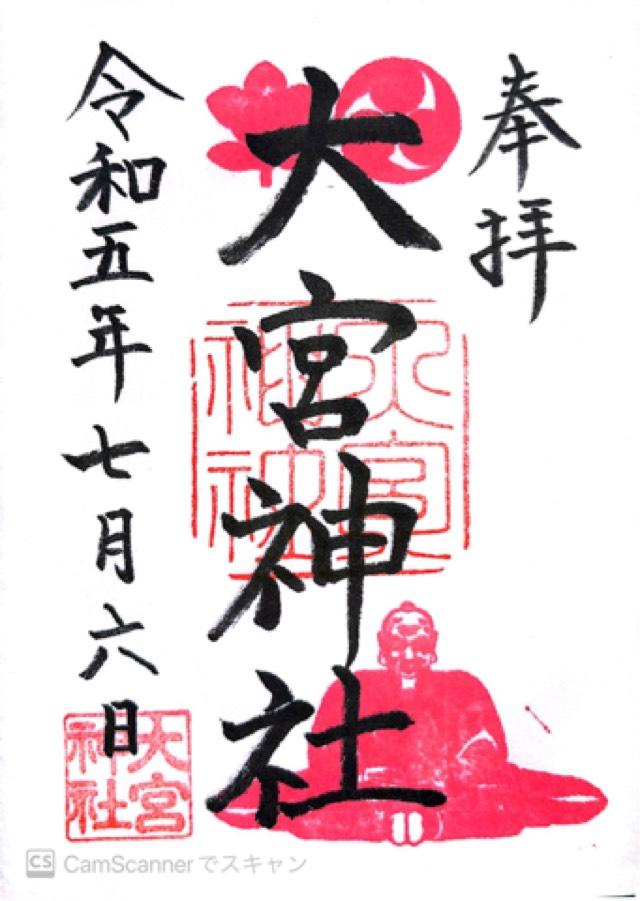 奉拝
大宮神社
令和五年七月六日
大宮神社
大宮神社
CS CamScannerでスキャン